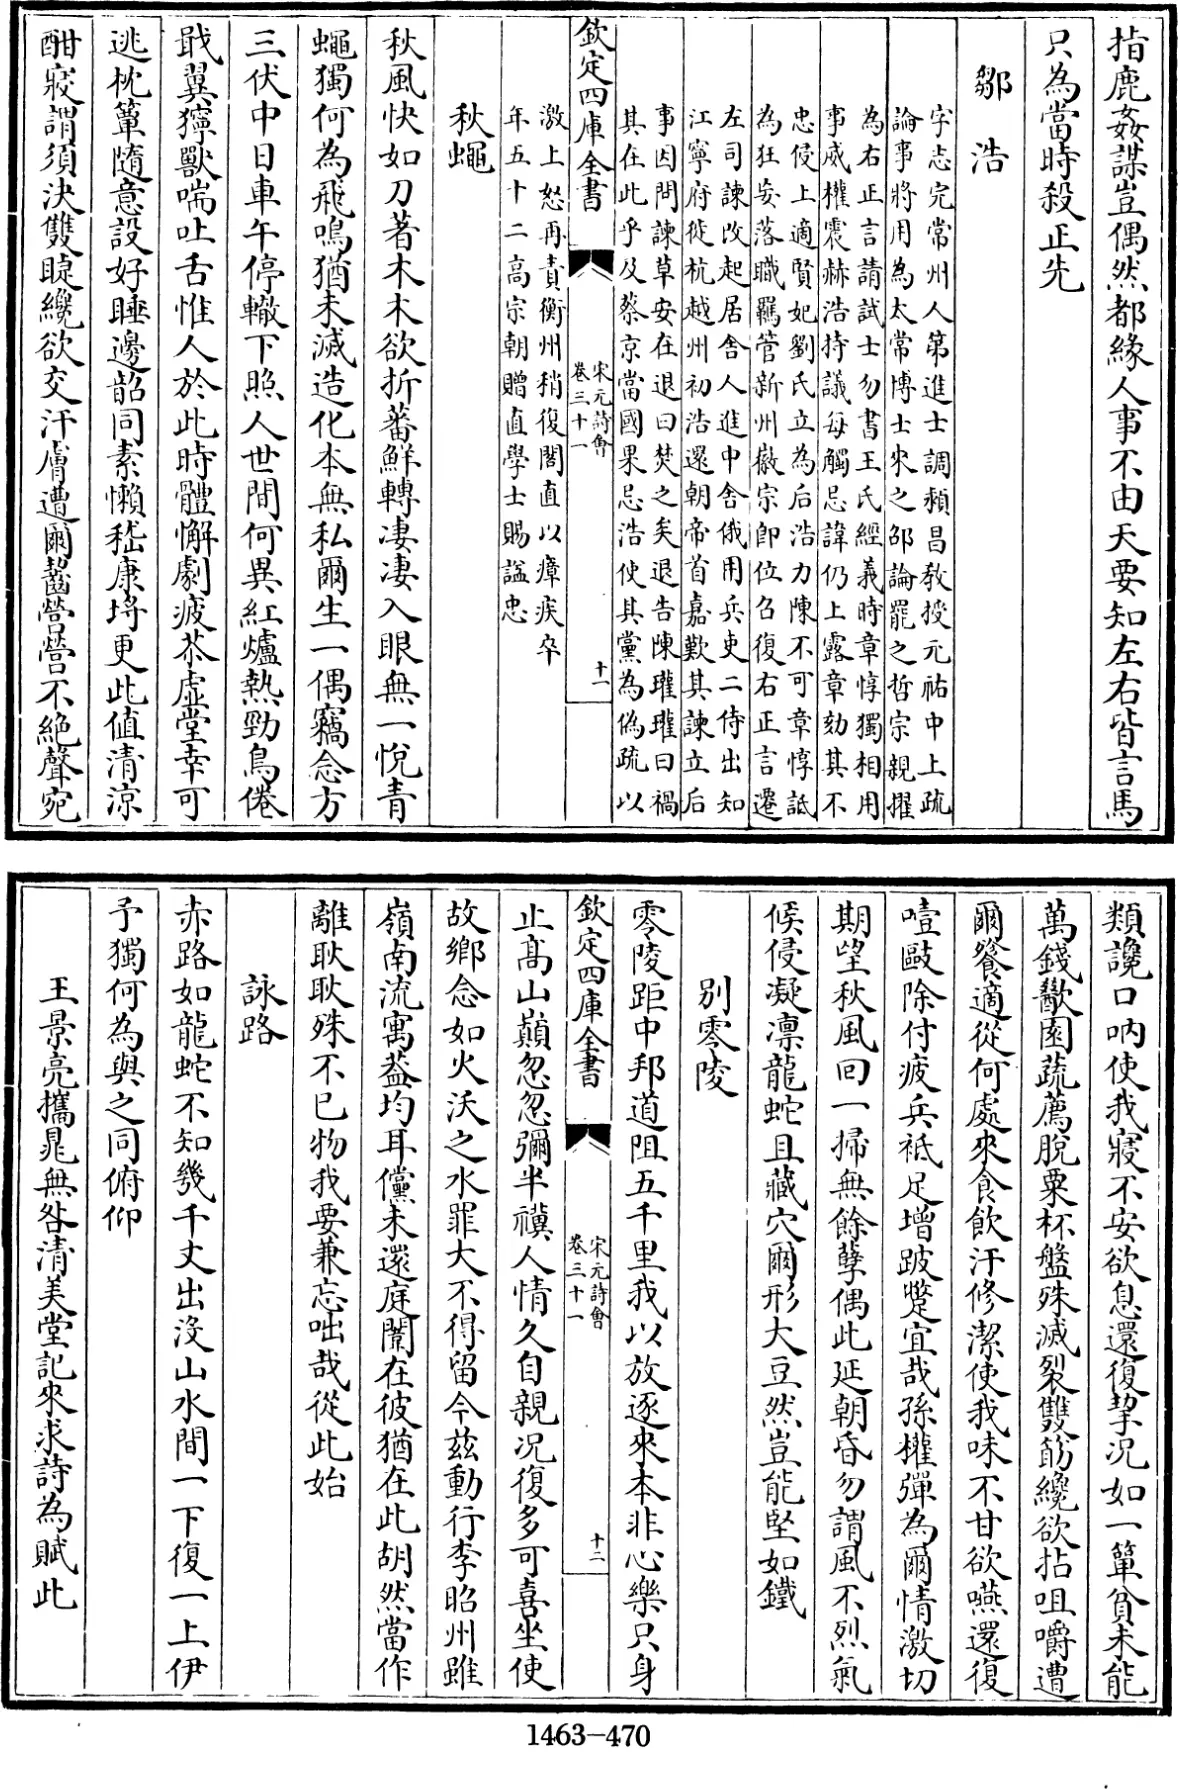 指鹿姦謀豈偶然都緣人事不由天要知左右皆言馬
只為當時殺正先
鄒浩
字志完常州人第進士調潁昌教授元祐中上疏
論事將用為太常博士來之邵論罷之哲宗親擢
為右正言請試士勿書王氏經義時章惇獨相用
事威權震赫浩持議每觸忌諱仍上露章劾其不
忠侵上適賢妃劉氏立為后浩力陳不可章惇詆
為狂妄落職羈管新州徽宗即位召復右正言遷
左司諫改起居舍人進中舍俄用兵吏二侍出知
江寧府徙杭越州初浩還朝帝首嘉歎其諫立后
事因問諫草安在退曰焚之矣退告陳瓘瓘曰禍
其在此乎及蔡京當國果忌浩使其黨為偽疏以
欽定四庫全書
宋元詩會
卷三十一
十一
激上怒再責衡州稍復閣直以瘴疾卒
年五十二高宗朝贈直學士賜諡忠
秋蠅
秋風快如刀著木木欲折蕃鮮轉淒淒入眼無一悅青
蠅獨何為飛鳴猶未滅造化本無私爾生一偶竊念方
三伏中日車午停轍下照人世間何異紅爐熱勁鳥倦
戢翼獰獸喘吐舌惟人於此時體懈劇疲苶虛堂幸可
逃枕簟隨意設好睡邊韶同素懶嵇康埓更此值清涼
酣寢謂須決雙睫纔欲交汗膚遭爾齧營營不絕聲宛
類讒口吶使我寢不安欲息還復挈況如一簞貧未能
萬錢歠園蔬薦脫粟杯盤殊滅裂雙筯纔欲拈咀嚼遭
爾餮適從何處來食飲汙修潔使我味不甘欲嚥還復
噎毆除付疲兵祗足增跛蹩宜哉孫權彈為爾情激切
期望秋風回一掃無餘孽偶此延朝昏勿謂風不烈氣
候侵凝凛龍蛇且藏穴爾形大豆然豈能堅如鐵
別零陵
零陵距中邦道阻五千里我以放逐來本非心樂只身
欽定四庫全書
宋元詩會
卷三十一
十二
止髙山巔忽忽彌半禩人情久自親況復多可喜坐使
故鄉念如火沃之水罪大不得留今兹動行李昭州雖
嶺南流寓葢均耳儻未還庭闈在彼猶在此胡然當作
離耿耿殊不已物我要兼忘咄哉從此始
詠路
赤路如龍蛇不知幾千丈出沒山水間一下復一上伊
予獨何為與之同俯仰
王景亮攜晁無咎清美堂記來求詩為賦此
1463-470